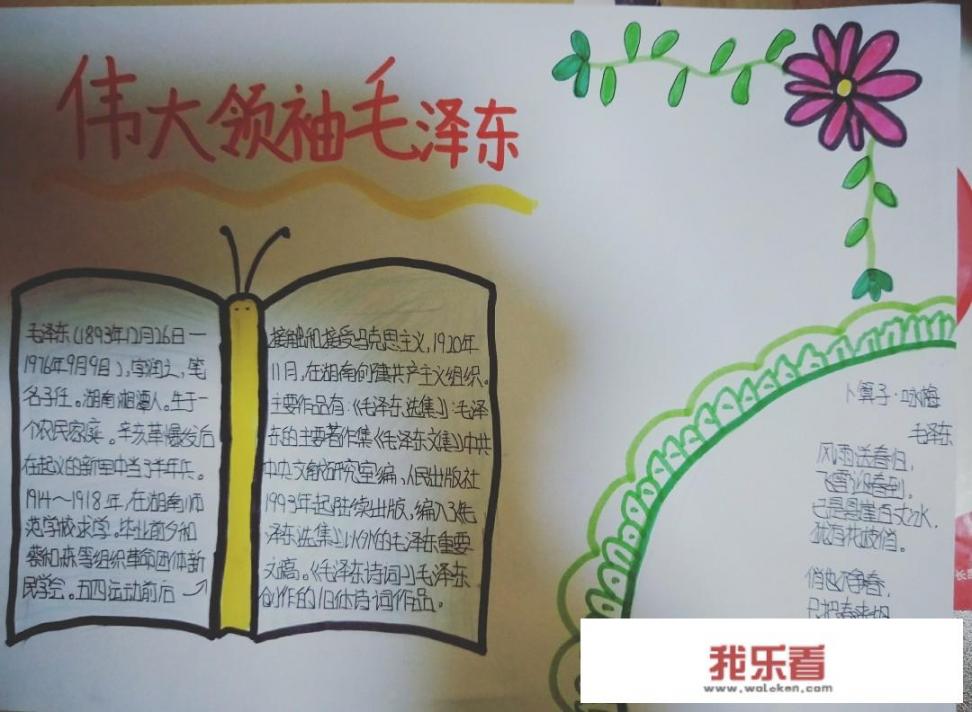 伟大领袖毛泽东
毛泽东(1893年12月26日—
1976年9月9日),字润之,笔
名子任。湖南湘潭人。生于一
个农民家庭。辛亥革命爆发后
在起义的新军中当了半年兵。
1914~1918年,在湖南师
范学校求学。毕业前夕和
蔡和森等组织革命团体新
民学会。五四运动前后
接触和接受马克思主义,1920年
11月,在湖南创建共产主义组织。
主要作品有:《毛泽东选集》:毛泽
东的主要著作集《毛泽东文集》中共
中央文献研究室编、人民出版社
1993年起陆续出版,编入《毛
泽东选集》以外的毛泽东重要
文稿。《毛泽东诗词》毛泽东
创作的旧体诗词作品。
卜算子·咏梅
毛泽东
风雨送春归,
飞雪迎春到。
已是悬崖百丈冰,
犹有花枝俏。
俏也不争春,
只把春来
我乐看
www.woleken.com